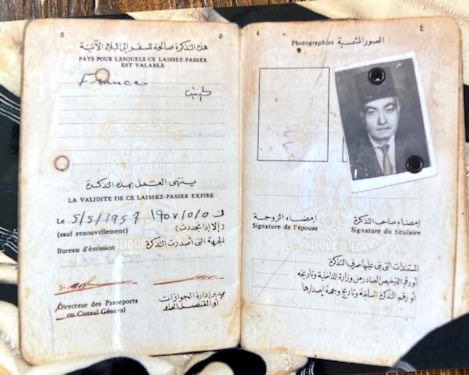 ٥
هذه التذكرة صالحة للسفر إلى البلاد الآتية
PAYS POUR LESQUELS CE LAISSEZ-PASSER
EST VALABLE
France
ينتهى العمل بهذه التذكرة
LA VALIDITE DE CE LAISSEZ-PASSER EXPIRE
Le 5/5/1957 ١٩٥٧/٥/٥ فى
(sauf renouvellement) (إلا إذا جددت)
Bureau d'émission الجهة التى أصدرت التذكرة
Directeur des Passeports مدير إدارة الجوازات
ou Consul Général أو القنصل العام
٤
Photographies الصور الشمسية
إمضاء الزوجة إمضاء صاحب التذكرة
Signature de l'épouse Signature du titulaire
المستندات التى بنى عليها صرف التذكرة
أو رقم الترخيص الصادر من وزارة الداخلية وتاريخه
أو رقم التذكرة السابقة وتاريخ وجهة إصدارها